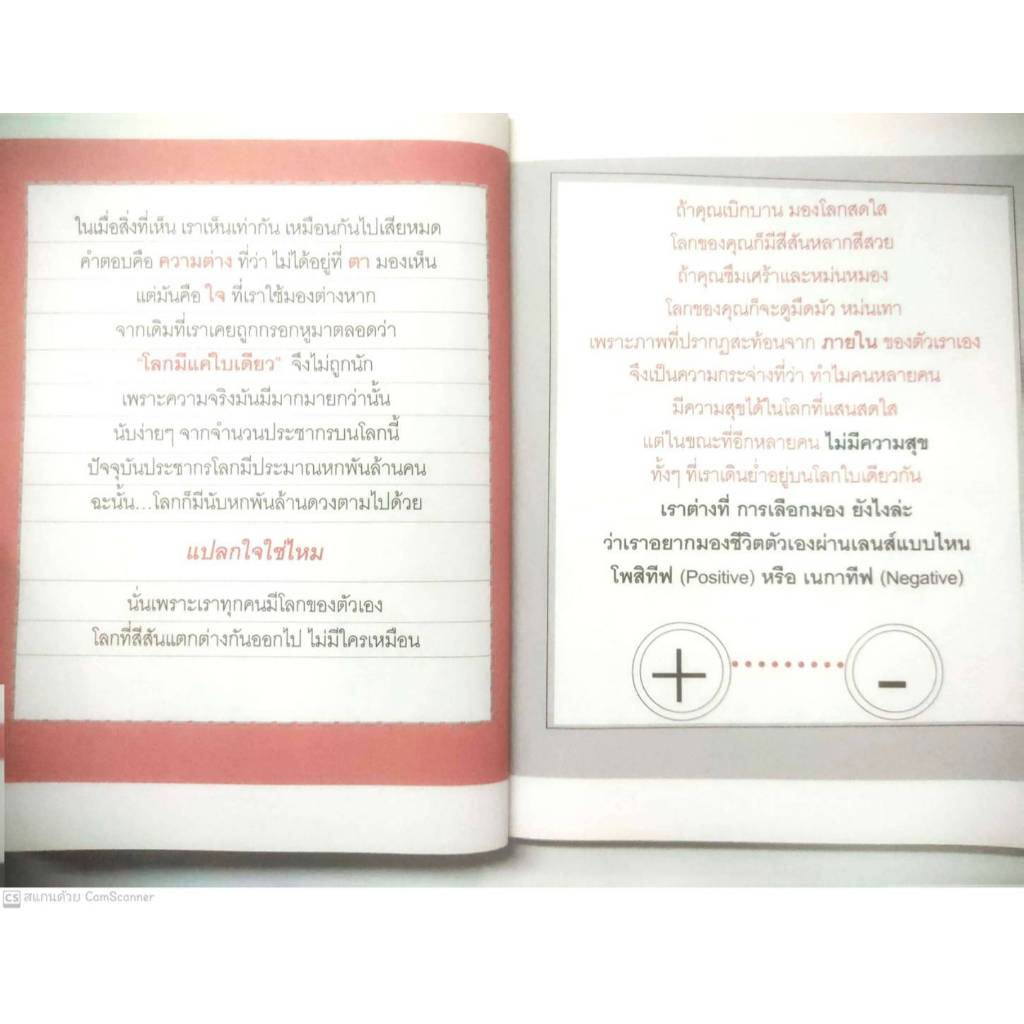 ในเมื่อสิ่งที่เห็น เราเห็นเท่ากัน เหมือนกันไปเสียหมด
คำตอบคือ ความต่าง ที่ว่า ไม่ได้อยู่ที่ ตา มองเห็น
แต่มันคือ ใจ ที่เราใช้มองต่างหาก
จากเดิมที่เราเคยถูกกรอกหูมาตลอดว่า
"โลกมีแค่ใบเดียว" จึงไม่ถูกนัก
เพราะความจริงมันมีมากมายกว่านั้น
นับง่ายๆ จากจำนวนประชากรบนโลกนี้
ปัจจุบันประชากรโลกมีประมาณหกพันล้านคน
ฉะนั้น...โลกก็มีนับหกพันล้านดวงตามไปด้วย
แปลกใจใช่ไหม
นั่นเพราะเราทุกคนมีโลกของตัวเอง
โลกที่สีสันแตกต่างกันออกไป ไม่มีใครเหมือน
ถ้าคุณเบิกบาน มองโลกสดใส
โลกของคุณก็มีสีสันหลากสีสวย
ถ้าคุณซึมเศร้าและหม่นหมอง
โลกของคุณก็จะดูมืดมัว หม่นเทา
เพราะภาพที่ปรากฏสะท้อนจาก ภายใน ของตัวเราเอง
จึงเป็นความกระจ่างที่ว่า ทำไมคนหลายคน
มีความสุขได้ในโลกที่แสนสดใส
แต่ในขณะที่อีกหลายคน ไม่มีความสุข
ทั้งๆ ที่เราเดินย่ำอยู่บนโลกใบเดียวกัน
เราต่างที่ การเลือกมอง ยังไงล่ะ
ว่าเราอยากมองชีวิตตัวเองผ่านเลนส์แบบไหน
โพสิทีฟ (Positive) หรือ เนกาทีฟ (Negative)
+ -
CS สแกนด้วย CamScanner